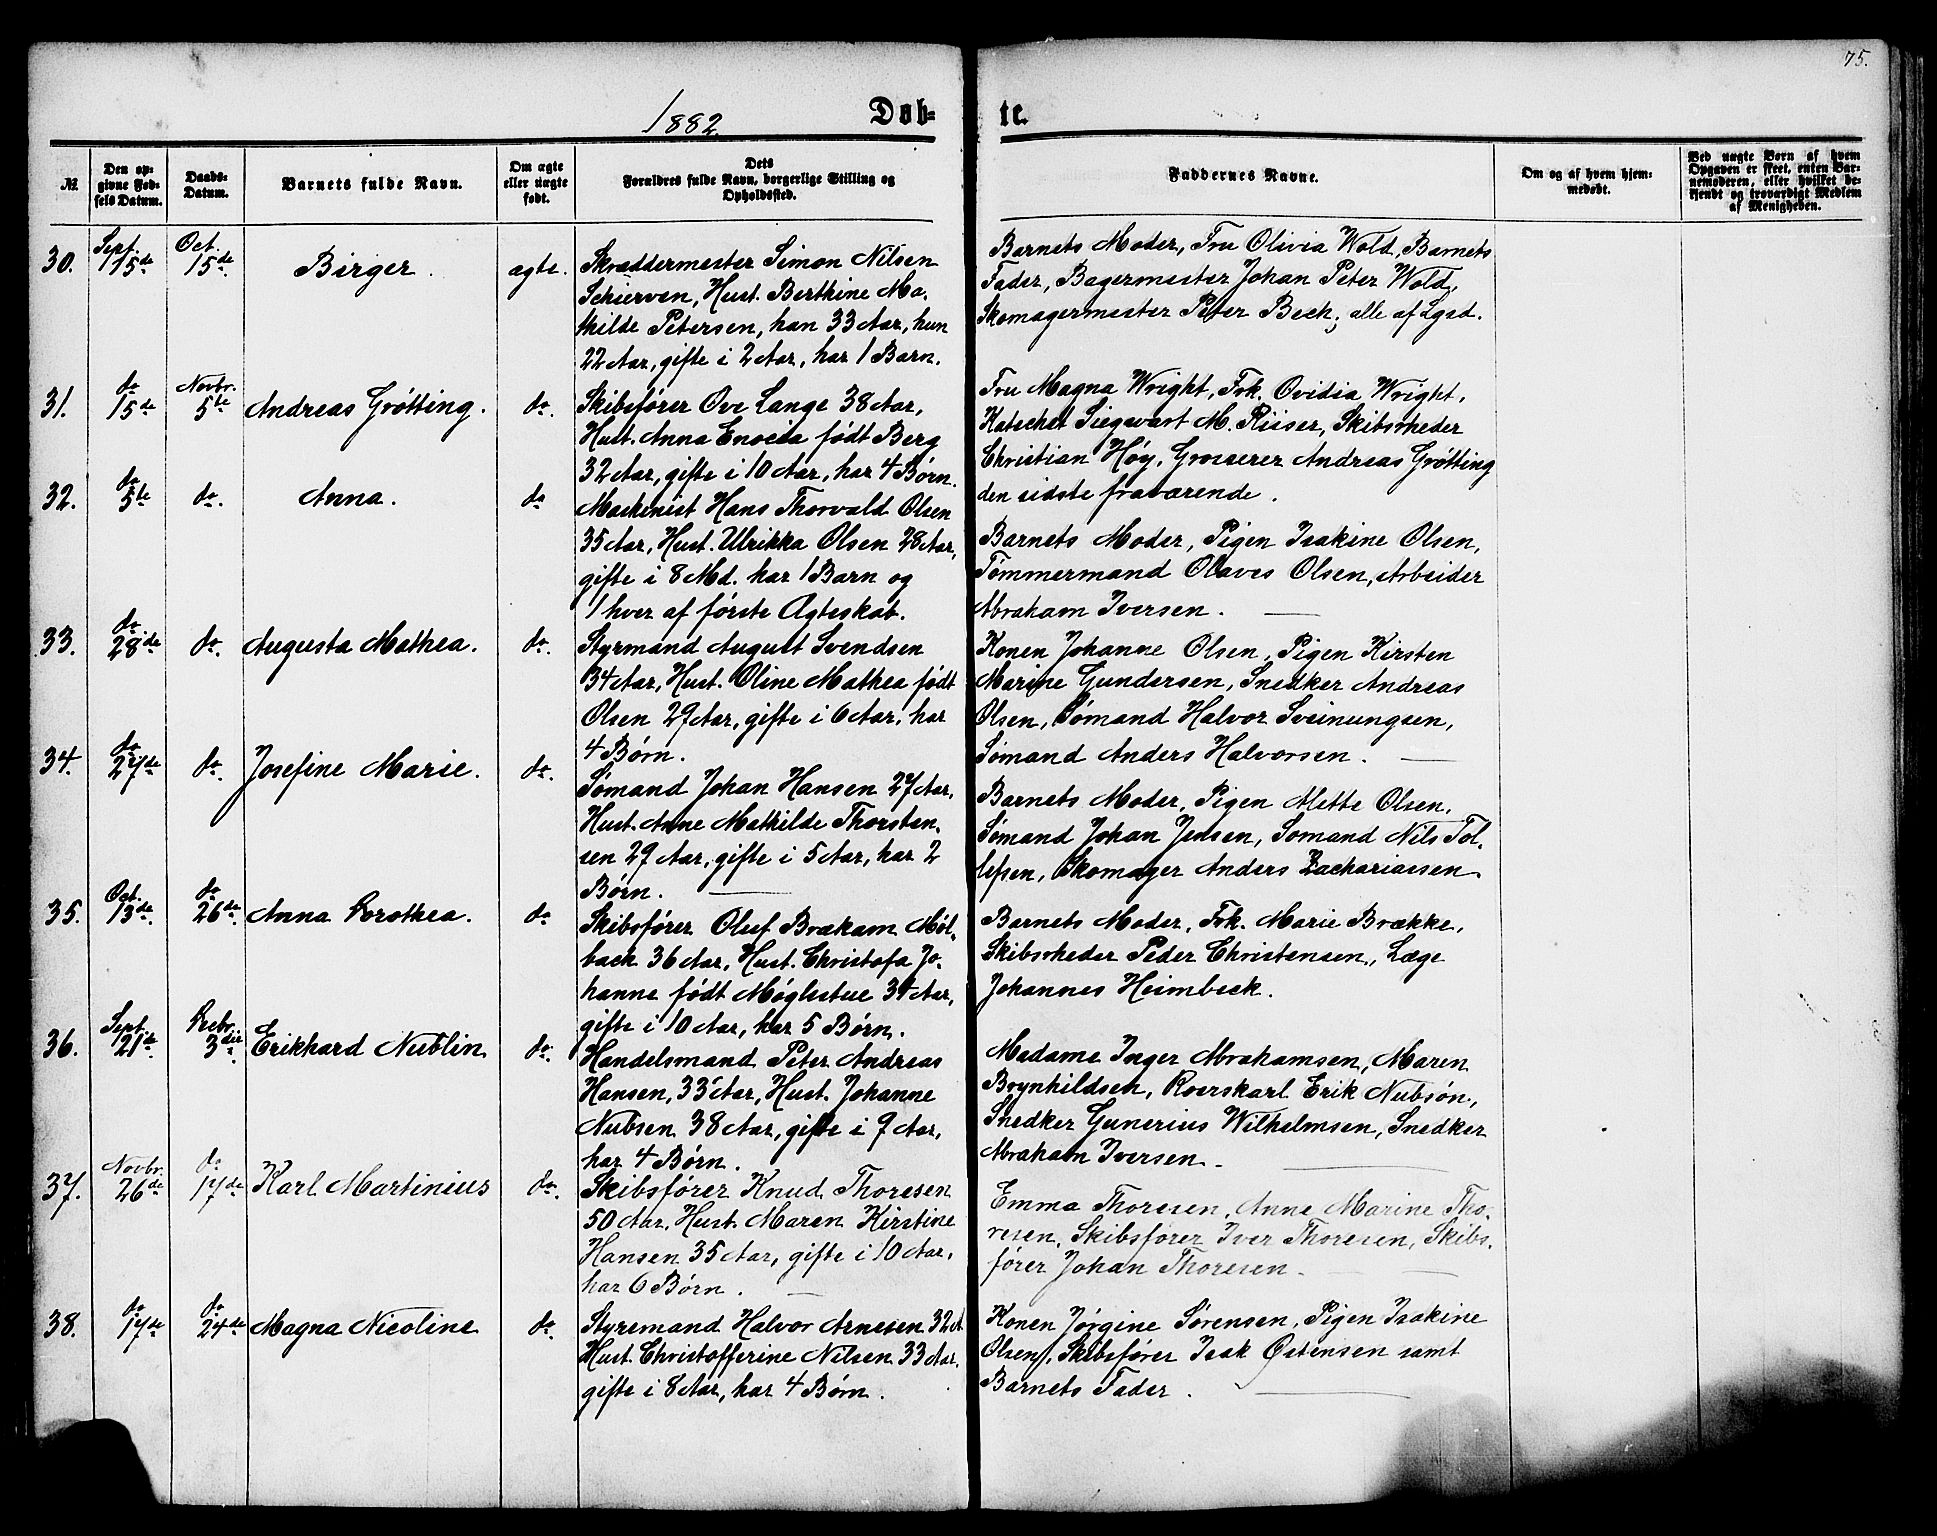 75.
1882.
Døb-
te.
№
Den op-
givne Fød-
sels Datum.
Daabs-
Datum.
Barnets fulde Navn.
Om ægte
eller uægte
født.
Dets
Forældres fulde Navn, borgerlige Stilling og
Opholdssted.
Faddernes Navne.
Om og af hvem hjem-
medøbt.
Ved uægte Børn af hvem
Opgaven er skeet, enten Bar-
nemoderen, eller hvilket be-
kjendt og troværdigt Medlem
af Menigheden.
30.
Sept.
15de
Oct.
15de
Birger.
ægte.
Skræddermester Simon Nilsen
Schierven, Hust. Berthine Ma-
thilde Petersen, han 33 Aar, hun
22 Aar, gifte i 2 Aar, har 1 Barn.
Barnets Moder, Fru Olivia Wold, Barnets
Fader, Bagermester Johan Peter Wold,
Skomagermester Peter Bech, alle af Lgsd.
31.
do
15de
Novbr.
5te
Andreas Grøtting.
do.
Skibsfører Ove Lange 38 Aar,
Hust. Anna Enocia født Berg
32 Aar, gifte i 10 Aar, har 4 Børn.
Fru Magna Wright, Frk. Ovidia Wright,
Katechet Siegwart M. Riiser, Skibsrheder
Christian Høy, Grosserer Andreas Grøtting
den sidste fraværende.
32.
do
5te
do.
Anna.
do
Maskinist Hans Thorvald Olsen
35 Aar, Hust. Ulrikka Olsen 28 Aar,
gifte i 8 Md. har 1 Barn og
1 hver af første Ægteskab.
Barnets Moder, Pigen Isakine Olsen,
Tømmermand Olaves Olsen, Arbeider
Abraham Iversen.
33.
do
28de
do.
Augusta Mathea.
do.
Styrmand August Svendsen
34 Aar, Hust. Oline Mathea født
Olsen 29 Aar, gifte i 6 Aar, har
4 Børn.
Konen Johanne Olsen, Pigen Kirsten
Marine Gundersen, Snedker Andreas
Olsen, Sømand Halvor Sveinungsen,
Sømand Anders Halvorsen.
34.
do
27de
do.
Josefine Marie.
do.
Sømand Johan Hansen 27 Aar,
Hust. Anne Mathilde Thorsten-
sen 29 Aar, gifte i 5 Aar, har 2
Børn.
Barnets Moder, Pigen Mette Olsen,
Sømand Johan Jensen, Sømand Nils Tol-
lefsen, Skomager Anders Zachariassen.
35.
Oct.
13de
do
26de
Anna Dorothea.
do
Skibsfører Oluf Brækam Møl-
back 36 Aar, Hust. Christofa Jo-
hanne født Møglestue 34 Aar,
gifte i 10 Aar, har 5 Børn.
Barnets Moder, Frk. Marie Brække,
Skibsrheder Peder Christensen, Læge
Johannes Heimbeck.
36.
Sept.
21de
Decbr.
3die
Erikhard Nublin
do.
Handelsmand Peter Andreas
Hansen, 33 Aar, Hust. Johanne
Nubsen 38 Aar, gifte i 9 Aar,
har 4 Børn.
Madame Inger Abrahamsen, Maren
Brynhildsen, Roerskarl Erik Nubsøn,
Snedker Gunerius Wilhelmsen, Snedker
Abraham Iversen.
37.
Novbr.
26de
do
17de
Karl Martinius
do.
Skibsfører Knud Thoresen
50 Aar, Hust. Maren Kirstine
Hansen 35 Aar, gifte i 10 Aar,
har 6 Børn.
Emma Thoresen, Anne Marine Tho-
resen, Skibsfører Iver Thoresen, Skibs-
fører Johan Thoresen.
38.
do
17de
do
24de
Magna Nicoline
do.
Styremand Halvor Arnesen 32 A
Hust. Christofferine Nilsen 33 Aar,
gifte i 8 Aar, har 4 Børn.
Konen Jørgine Sørensen, Pigen Isakine
Olsen, Skibsfører Isak Østensen samt
Barnets Fader.